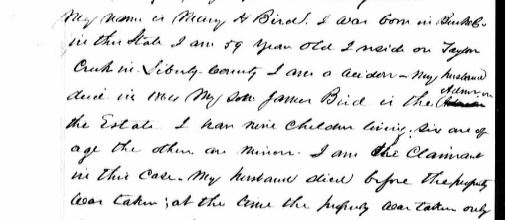 My name is Mary A Bird. I was born in Burke Co
in this State I am 59 Year old I reside on Taylor
Creek in Liberty County I am a widow - my husband
died in 1864 My son James Bird is the Admr. on
the Estate. I have nine children living, six are of
age the other are minors. I am the Claimant
in this case. My husband died before the property
was taken; at the time the property was taken only